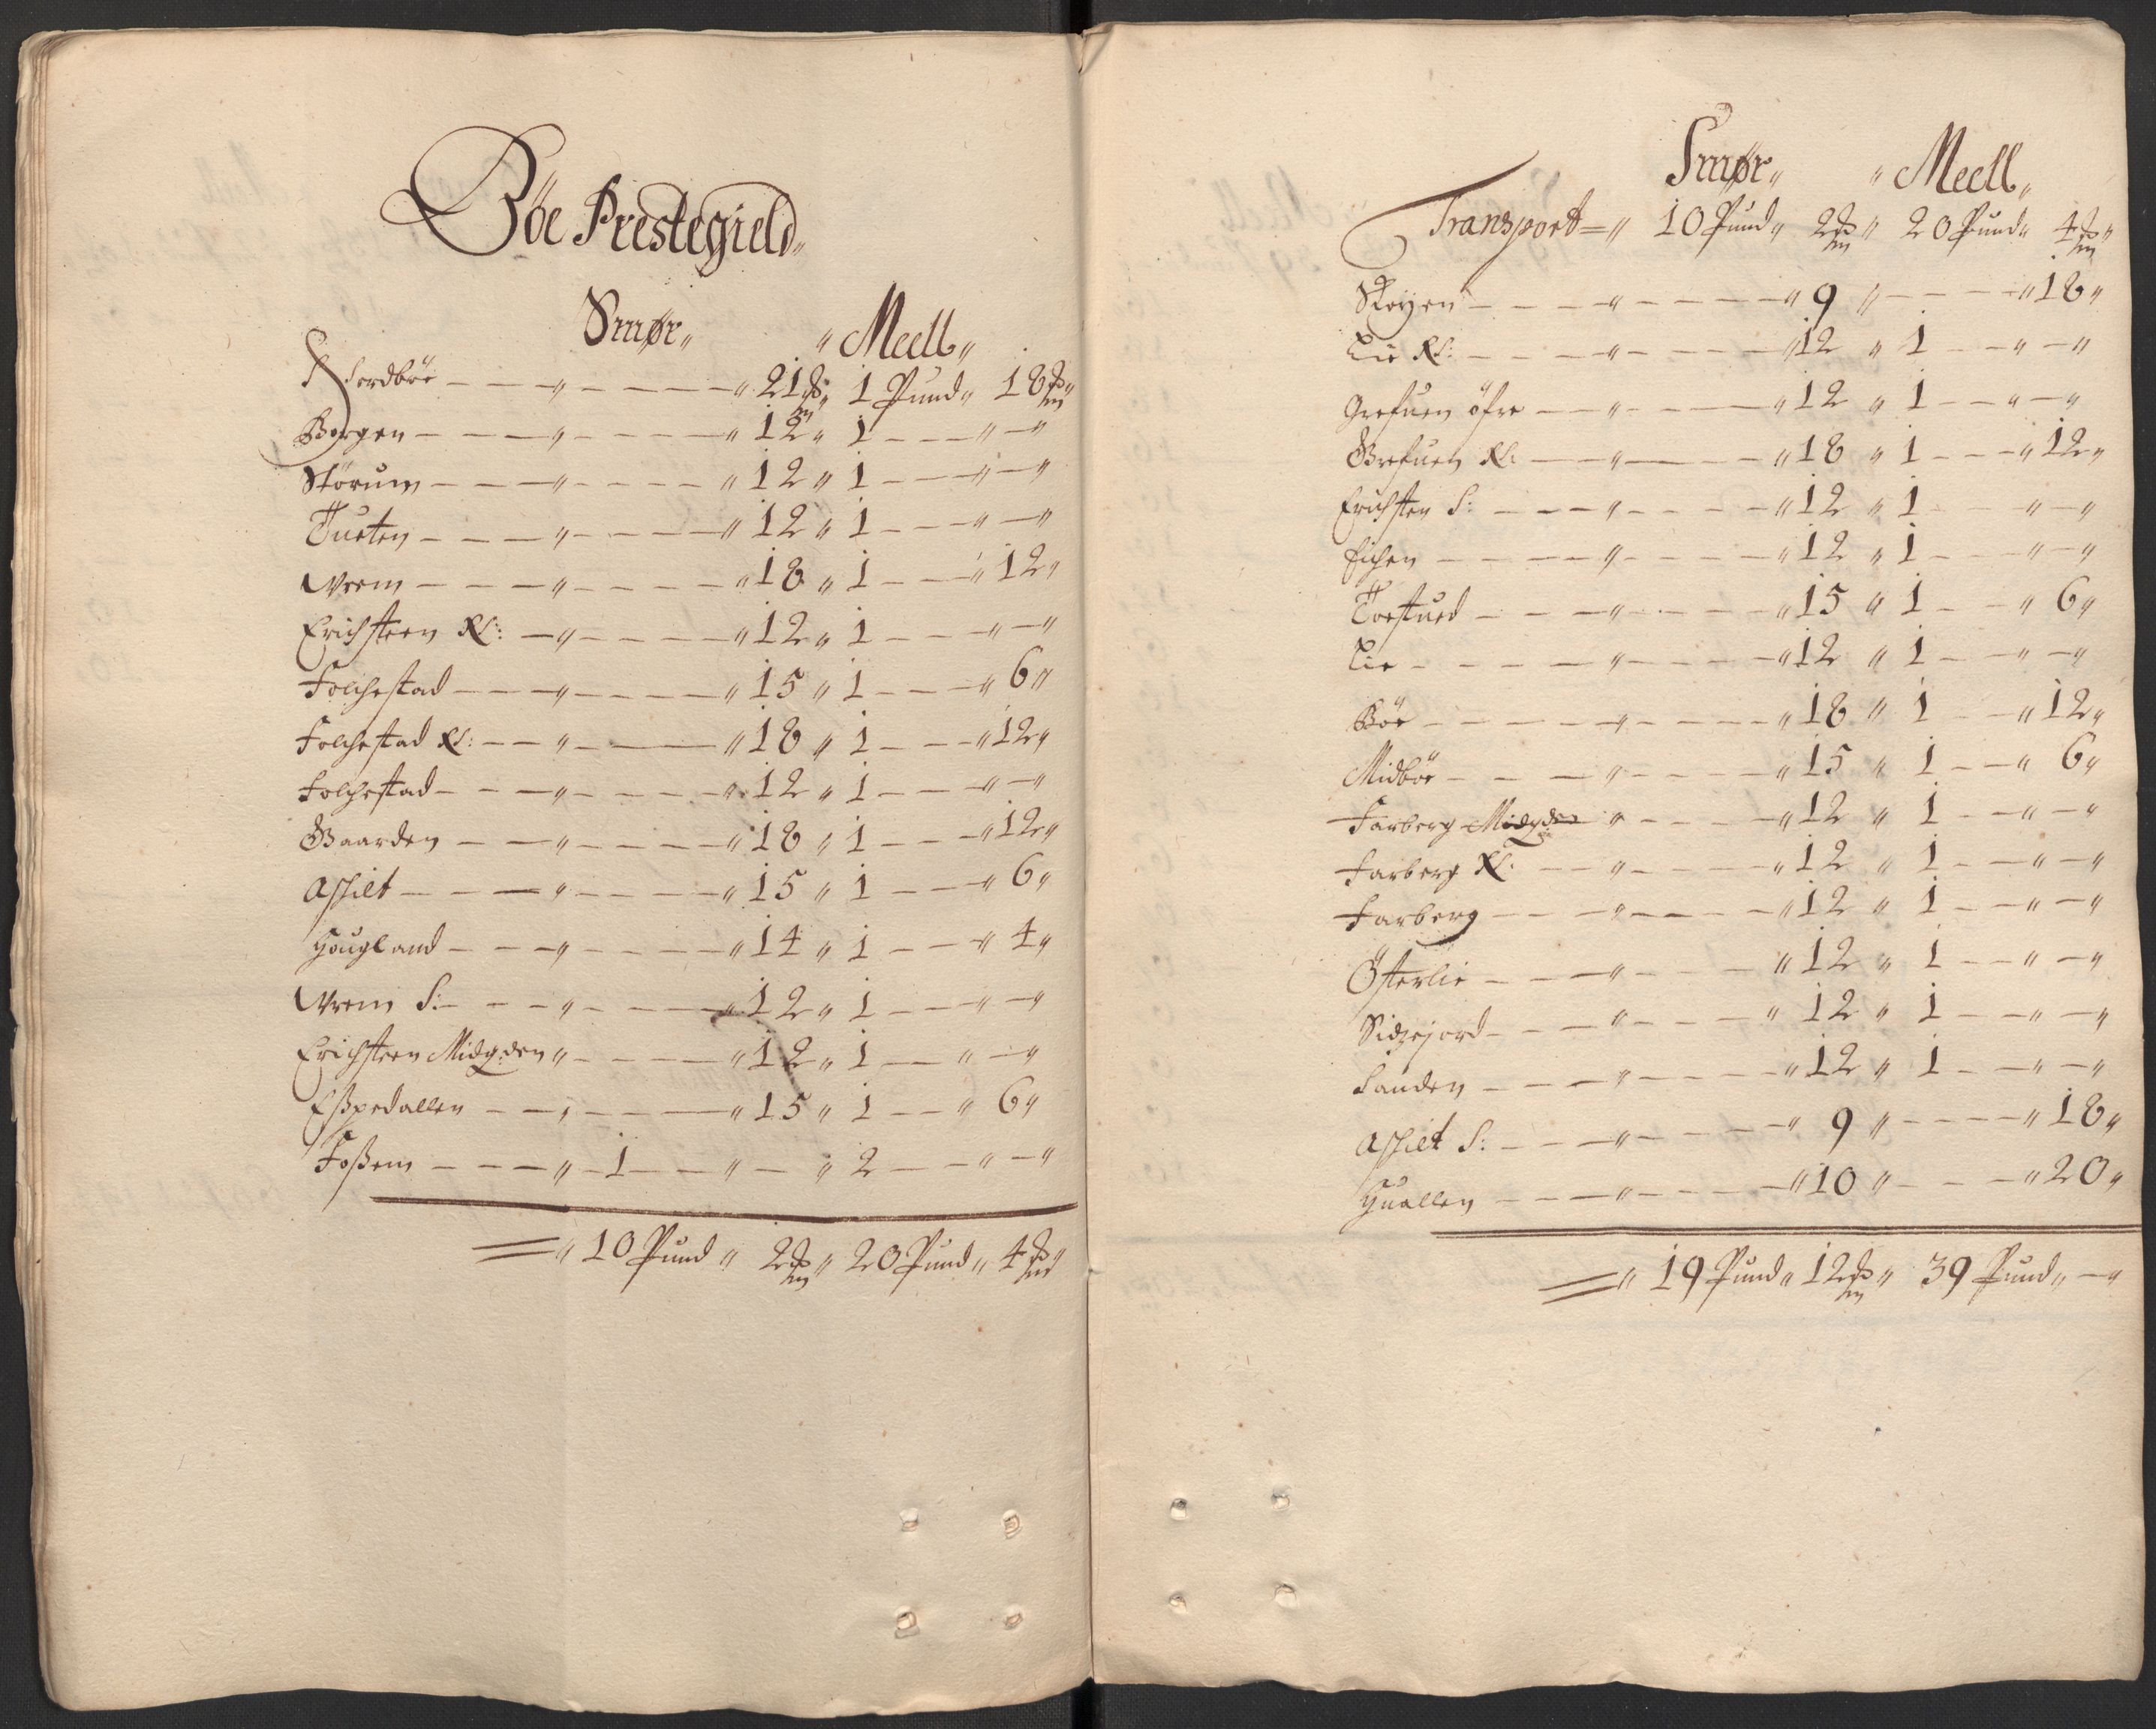 Böe Prestegield„
Smør„ „Meell„
Nordbör — — — „ — — — „ 21 ℔„ 1 Pund„ 18 ℔„
Borgen — — — „ — — — „ 12 „ 1 — — — „ — „
Störum — — — „ — — — „ 12 „ 1 — — — „ — „
Tueten — — — „ — — — „ 12 „ 1 — — — „ — „
Wrem — — — „ — — — „ 18 „ 1 — — „ 12 „
Erichsteen Rf: — „ — — — „ 12 „ 1 — — — „ — „
Folchestad — — — „ — — — „ 15 „ 1 — — — „ 6 „
Folchestad Rf: — — „ — — — „ 18 „ 1 — — — „ 12 „
Folchestad — — — „ — — — „ 12 „ 1 — — — „ — „
Gaarden — — „ — — — „ 18 „ 1 — — — „ 12 „
Askilt — — — „ — — — „ 15 „ 1 — — — „ 6 „
Hougland — — — „ — — — „ 14 „ 1 — — — „ 4 „
Wrem S: — — — „ — — — „ 12 „ 1 — — — „ — „
Erichsteen Midgden „ — — — „ 12 „ 1 — — „ — „
Eßpedallen — — „ — — — „ 15 „ 1 — — „ 6 „
Foßem — — — „ — 1 — — „ — „ 2 — — „ — „
= „ 10 Pund „ 2 ℔ „ 20 Pund „ 4 ℔ „
Smør„ „Meell„
Transport = „ 10 Pund „ 2 ℔ „ 20 Pund „ 4 ℔ „
Skoyen — — — „ — — — „ 9 „ — — — „ 18 „
Lie Rf: — — — „ — — — „ 12 „ 1 — — „ — „
Grefuen öfre — — „ — — — „ 12 „ 1 — — „ — „
Grefuen Rf: — — „ — — — „ 18 „ 1 — — — „ 12 „
Erichsten S: — — — „ — — — „ 12 „ 1 — — „ — „
Eichen — — — — „ — — — „ 12 „ 1 — — „ — „
Torstued — — — „ — — — „ 15 „ 1 — — „ 6 „
Lie — — — — „ — — — „ 12 „ 1 — — „ — „
Böe — — — — „ — — — „ 18 „ 1 — — „ 12 „
Midböe — — — „ — — — „ 15 „ 1 — — „ 6 „
Farberg Midgden „ — — — „ 12 „ 1 — — „ — „
Farberg Rf: — — „ — — — „ 12 „ 1 — — „ — „
Farberg — — — „ — — — „ 12 „ 1 — — „ — „
Österlie — — — „ — — — „ 12 „ 1 — — „ — „
Sidzejord — — — „ — — — „ 12 „ 1 — — „ — „
Sanden — — — „ — — — „ 12 „ 1 — — „ — „
Askilt S: — — — „ — — — „ 9 „ — — — „ 18 „
Huallen — — — „ — — — „ 10 „ — — — „ 20 „
= „ 19 Pund „ 12 ℔ „ 39 Pund „ — „